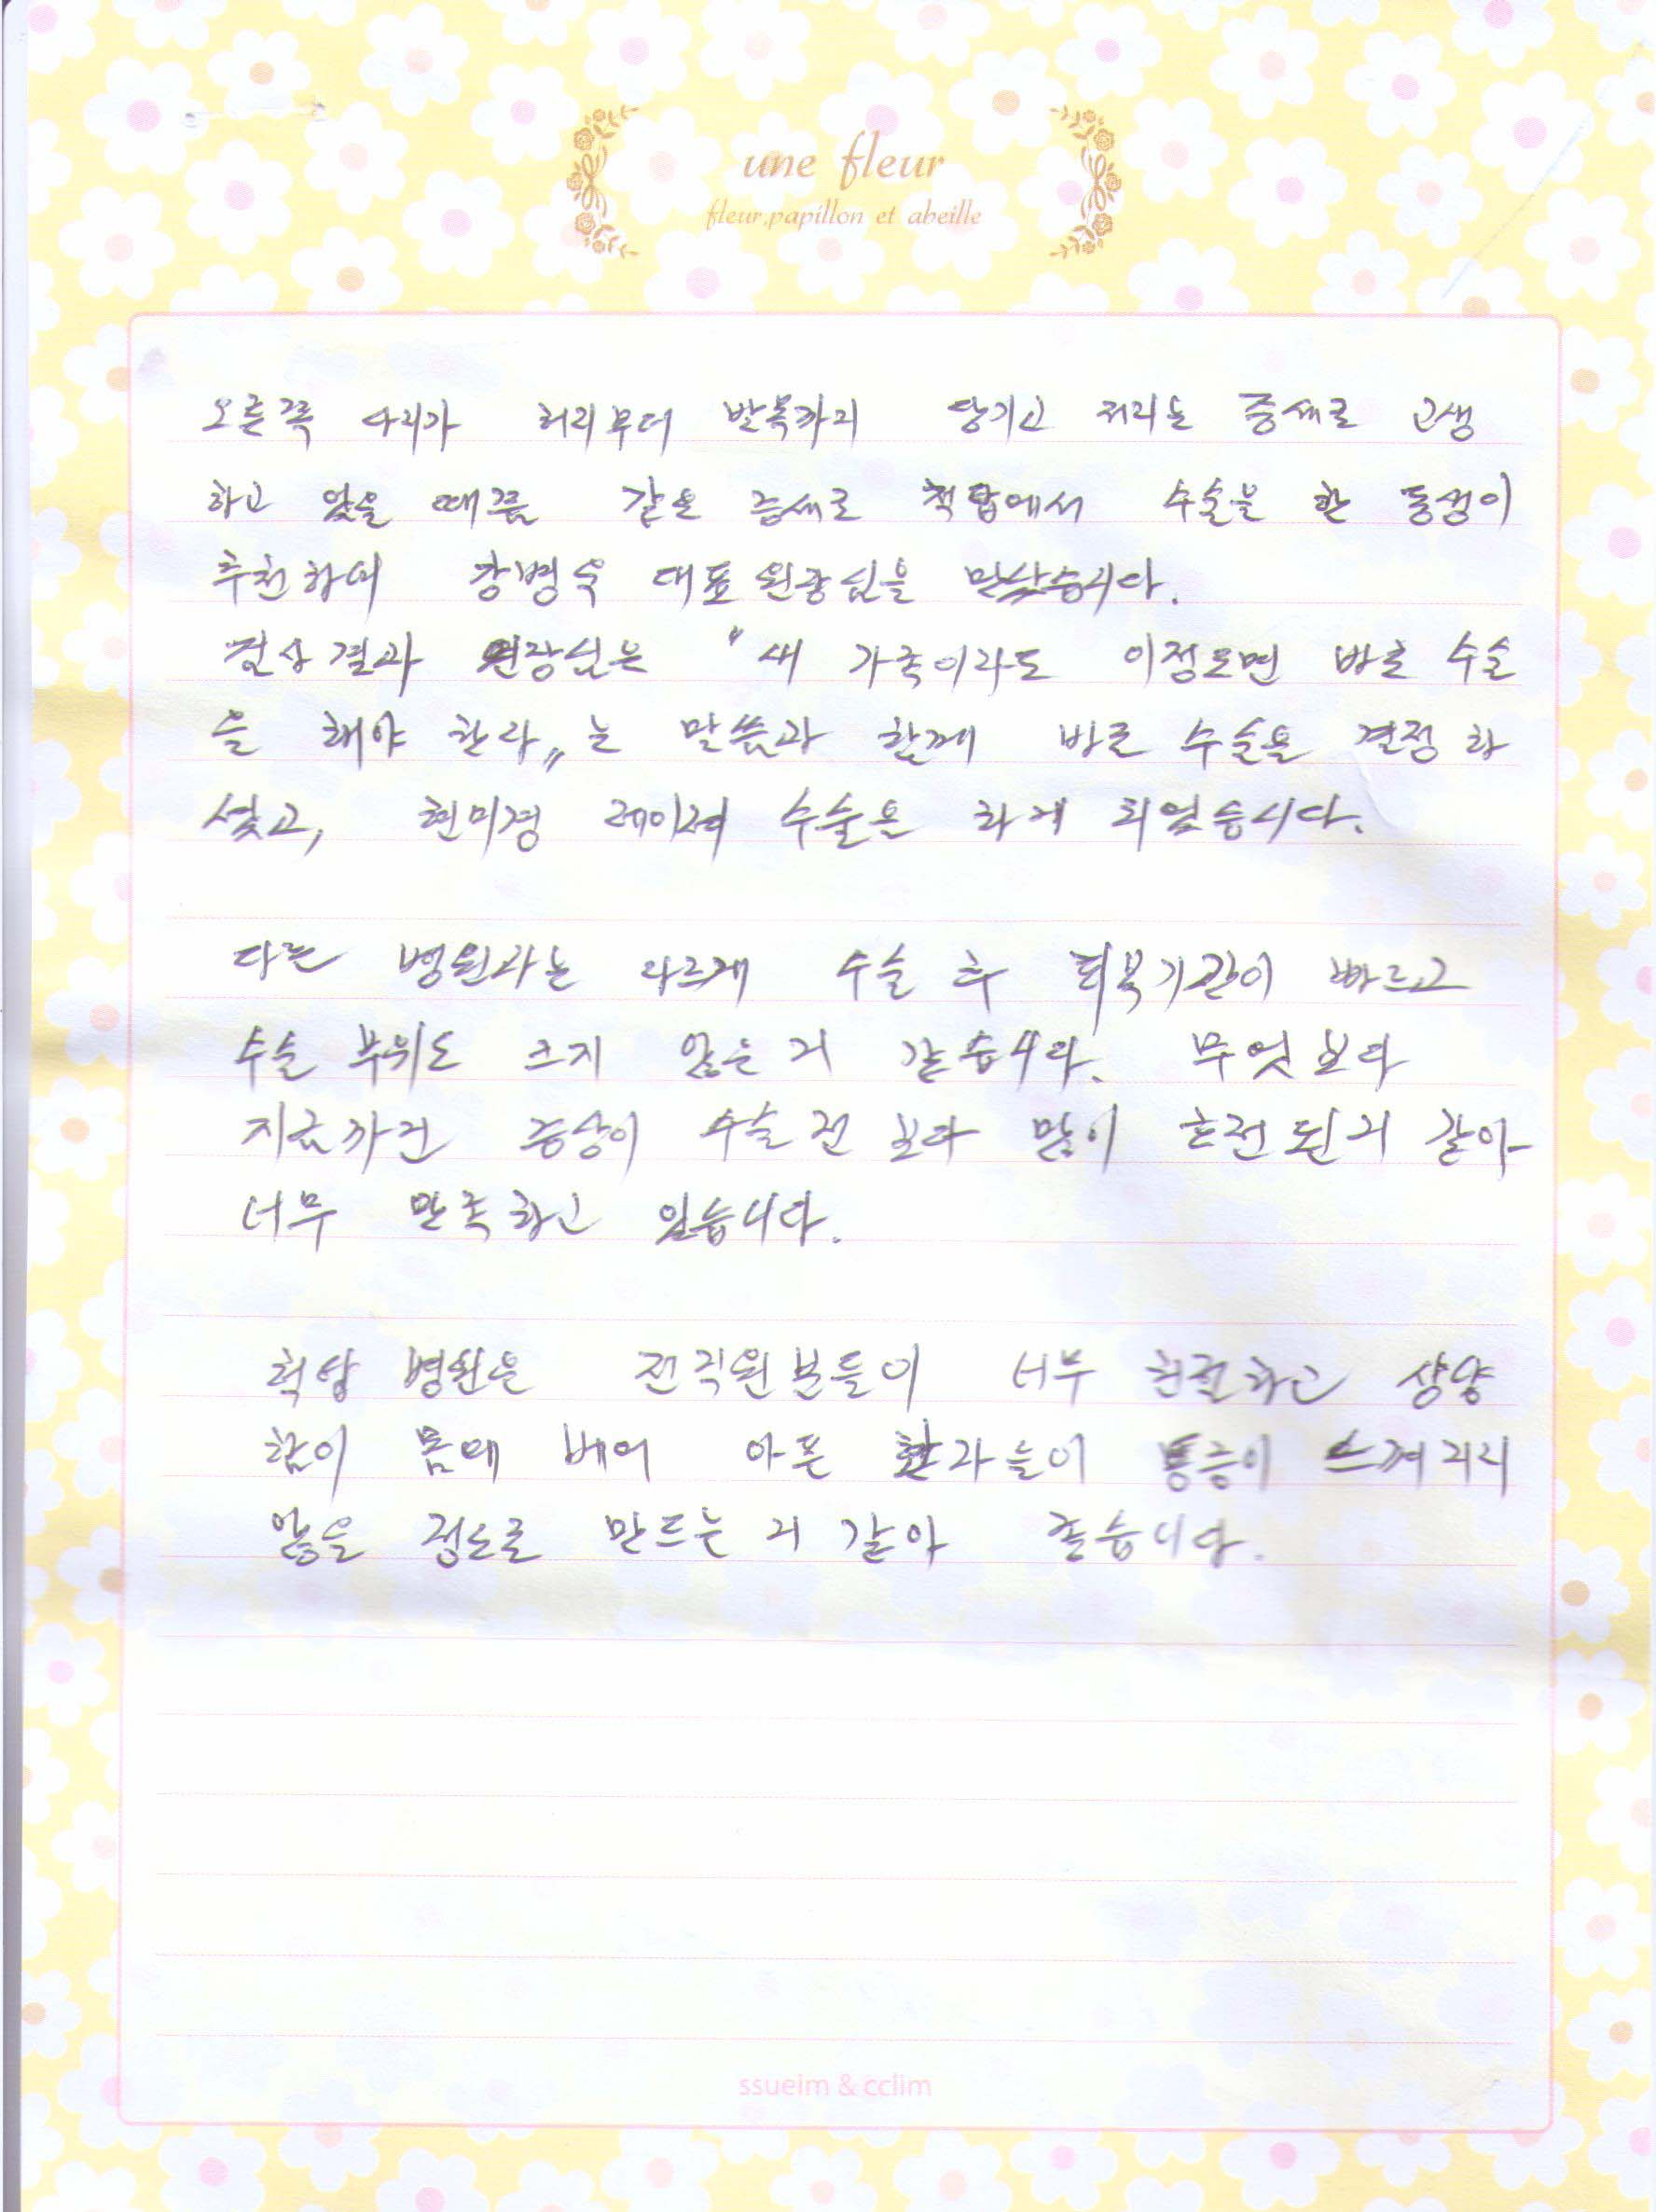 une fleur
fleur, papillon et abeille
오른쪽 다리가 허리부터 발목까지 당기고 저리는 증세로 고생
하고 있을 때쯤 같은 증세로 척탑에서 수술을 한 동생이
추천하여 강병욱 대표원장님을 만났습니다.
진상결과 원장님은 "내 가족이라도 이정도면 바로 수술
을 해야 한다"는 말씀과 함께 바로 수술을 결정하
셨고, 현미경 레이져 수술을 하게 되었습니다.
다른 병원과는 다르게 수술 후 회복기간이 빠르고
수술 부위도 크지 않은거 같습니다. 무엇보다
지금까진 증상이 수술전 보다 많이 호전된거 같아
너무 만족하고 있습니다.
척탑 병원은 전직원분들이 너무 친절하고 상냥
함이 몸에 베어 아픈 환자들이 통증이 느껴지지
않을 정도로 만드는 거 같아 좋습니다.
ssueim & cclim